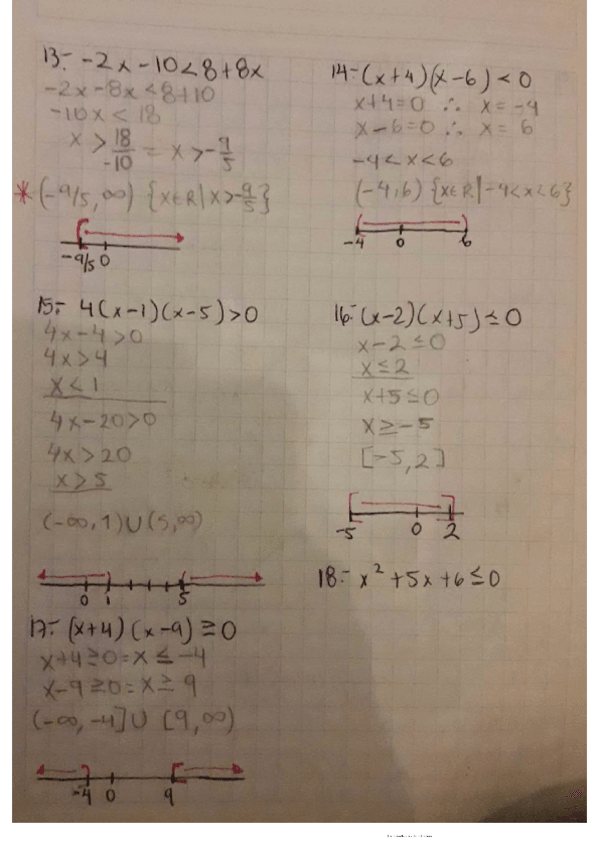 13:- -2x - 10 < 8 + 8x
-2x - 8x < 8 + 10
-10x < 18
x > 18/-10 = x > -9/5
* (-9/5, ∞) {x∈R | x > -9/5}
-9/5 0
14:- (x+4)(x-6) < 0
x+4=0 ∴ x = -4
x-6=0 ∴ x = 6
-4 < x < 6
(-4,6) {x∈R | -4 < x < 6}
-4 0 6
15:- 4(x-1)(x-5) > 0
4x-4 > 0
4x > 4
x < 1
4x-20 > 0
4x > 20
x > 5
(-∞, 1) U (5, ∞)
0 1 5
16:- (x-2)(x+5) ≤ 0
x-2 ≤ 0
x ≤ 2
x+5 ≤ 0
x ≥ -5
[-5, 2]
-5 0 2
17:- (x+4)(x-9) ≥ 0
x+4 ≥ 0 = x ≤ -4
x-9 ≥ 0 = x ≥ 9
(-∞, -4] U [9, ∞)
-4 0 9
18:- x² + 5x + 6 ≤ 0